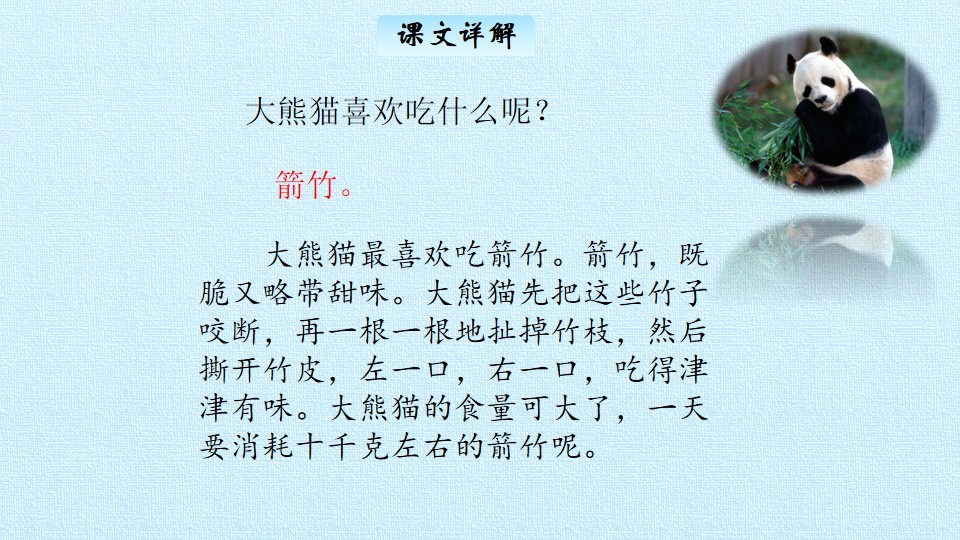 课文详解
大熊猫喜欢吃什么呢？
箭竹。
大熊猫最喜欢吃箭竹。箭竹，既
脆又略带甜味。大熊猫先把这些竹子
咬断，再一根一根地扯掉竹枝，然后
撕开竹皮，左一口，右一口，吃得津
津有味。大熊猫的食量可大了，一天
要消耗十千克左右的箭竹呢。